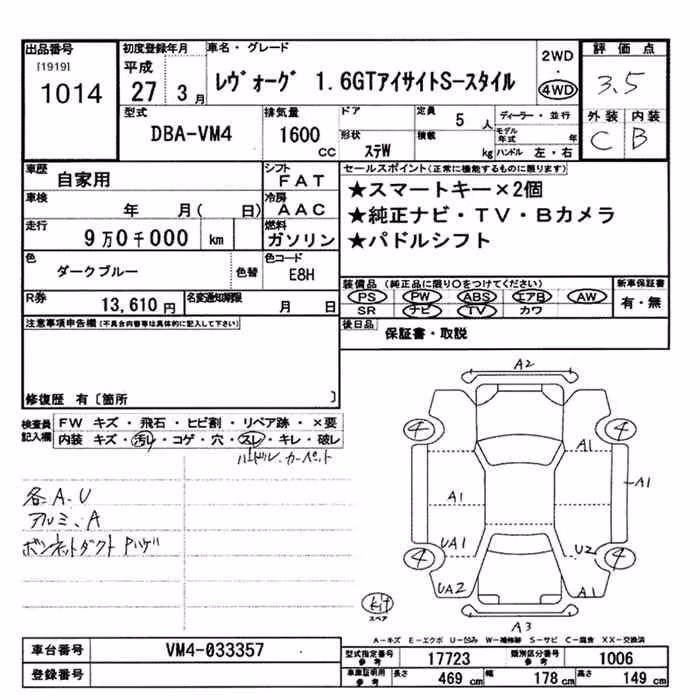 出品番号
[1919]
1014
初度登録年月
平成
27 3月
車名・グレード
レヴォーグ 1.6GTアイサイトS-スタイル
2WD
・
4WD
評価点
3.5
外装 内装
C B
型式
DBA-VM4
排気量
1600
cc
ドア
形状
ステW
定員
5人
積載
kg
ディーラー・並行
モデル年式 年
ハンドル 左・右
車歴
自家用
シフト
FAT
車検
年 月( 日)
冷房
AAC
走行
9万0千000 km
燃料
ガソリン
色
ダークブルー
色替
色コード
E8H
R券
13,610円
名変通知期限
月 日
セールスポイント(正常に機能するものに限ります)
★スマートキー×2個
★純正ナビ・TV・Bカメラ
★パドルシフト
装備品(純正品に限り○をつけてください)
PS PW ABS エアB AW
SR ナビ TV カワ
新車保証書
有・無
後日品
保証書・取説
注意事項申告欄(不具合内容等は具体的に記入して下さい)
修復歴 有〔箇所 〕
検査員記入欄
FW キズ・飛石・ヒビ割・リペア跡・×要
内装 キズ・汚レ・コゲ・穴・スレ・キレ・破レ
ハンドル、カーペット
各A、U
アルミ、A
ボンネットダクト Pハゲ
A2
4
4
A1
A1
A1
UA1
U2
4
4
UA2
A1
A3
スペア
A-キズ E-エクボ U-凹み W-補修跡 S-サビ C-腐食 XX-交換済
車台番号
VM4-033357
登録番号
型式指定番号 参考
17723
類別区分番号 参考
1006
車庫証明用 参考
長さ 469cm
幅 178cm
高さ 149cm